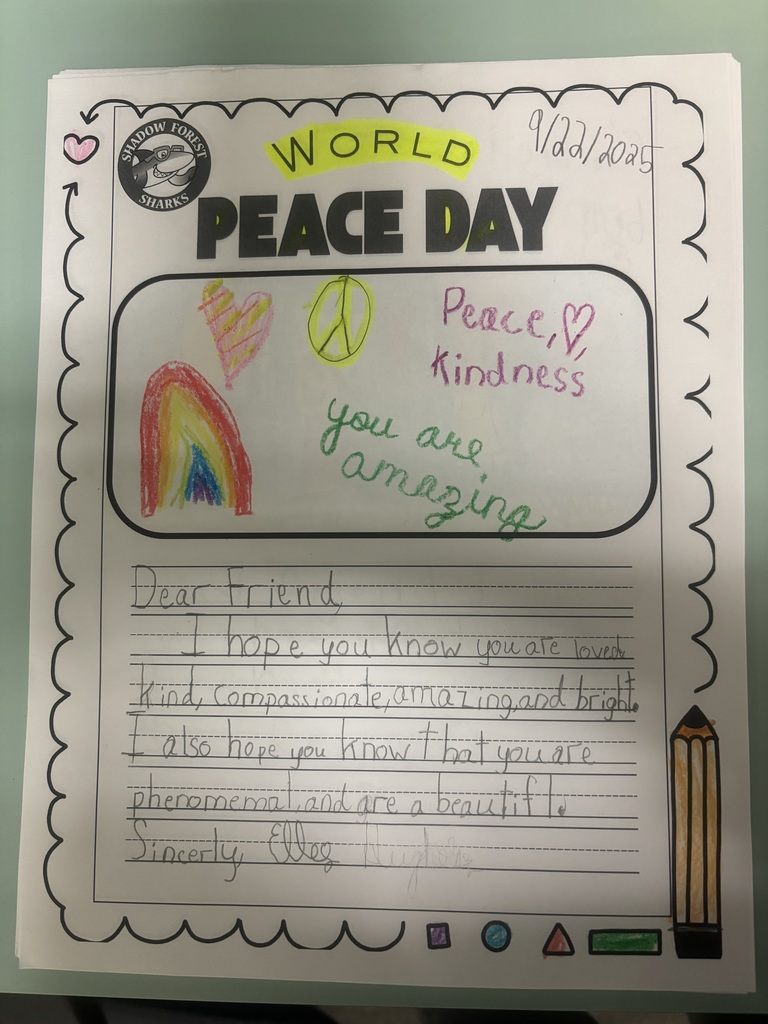 SHADOW FOREST
SHARKS
WORLD
9/22/2025
PEACE DAY
Peace, ♡,
kindness
you are
amazing
Dear Friend,
I hope you know you are loved,
kind, compassionate, amazing, and bright.
I also hope you know that you are
phenomemal, and are a beautifl.
Sincerly,